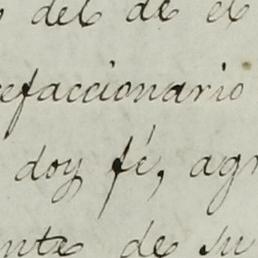 del de el
efaccionario
doy fé, agr
nte de su